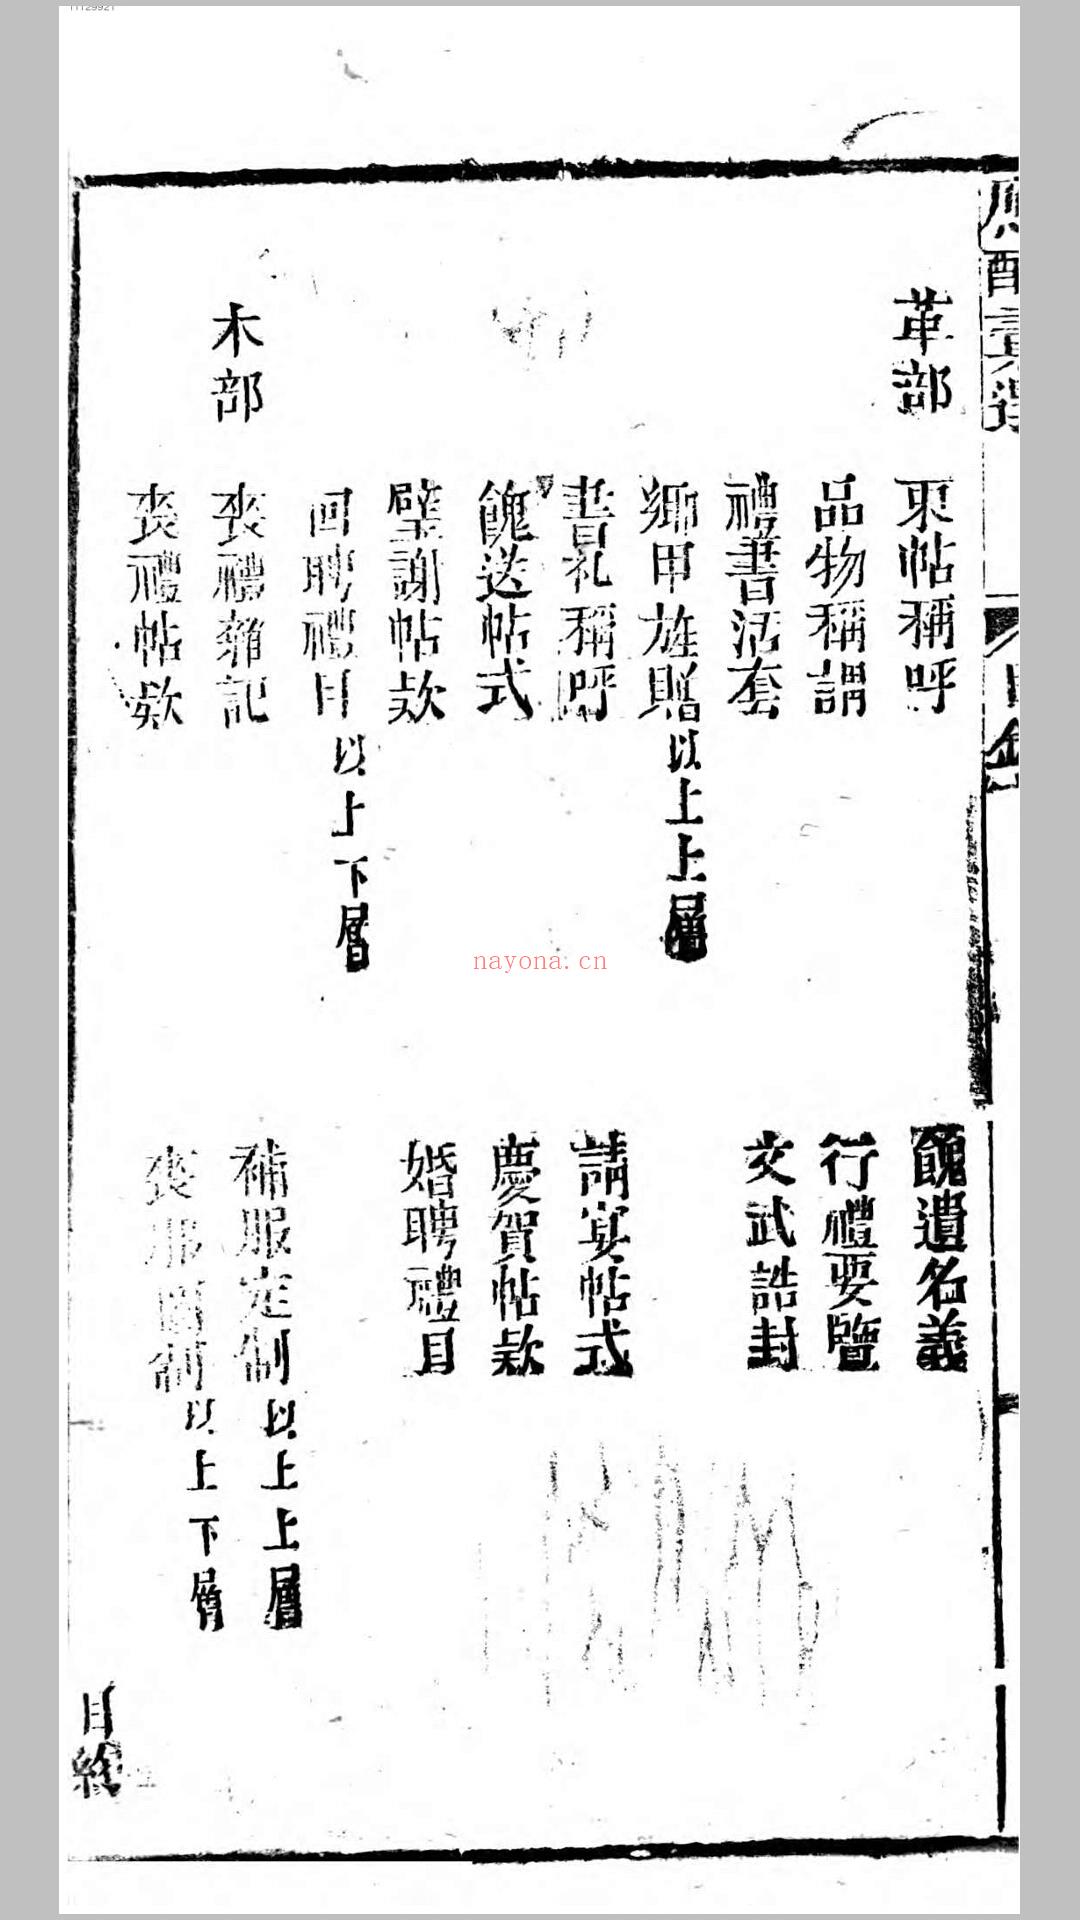 11129921
革部
柬帖稱呼
餽遺名義
品物稱謂
行禮要覽
禮書活套
文武誥封
鄉甲旌贈以上上層
書札稱呼
請宴帖式
餽送帖式
慶賀帖款
璧謝帖款
婚聘禮目
回聘禮目以上下層
木部
喪禮雜記
補服定制以上上層
喪禮帖款
喪服圖制以上下層
目終
nayona.cn